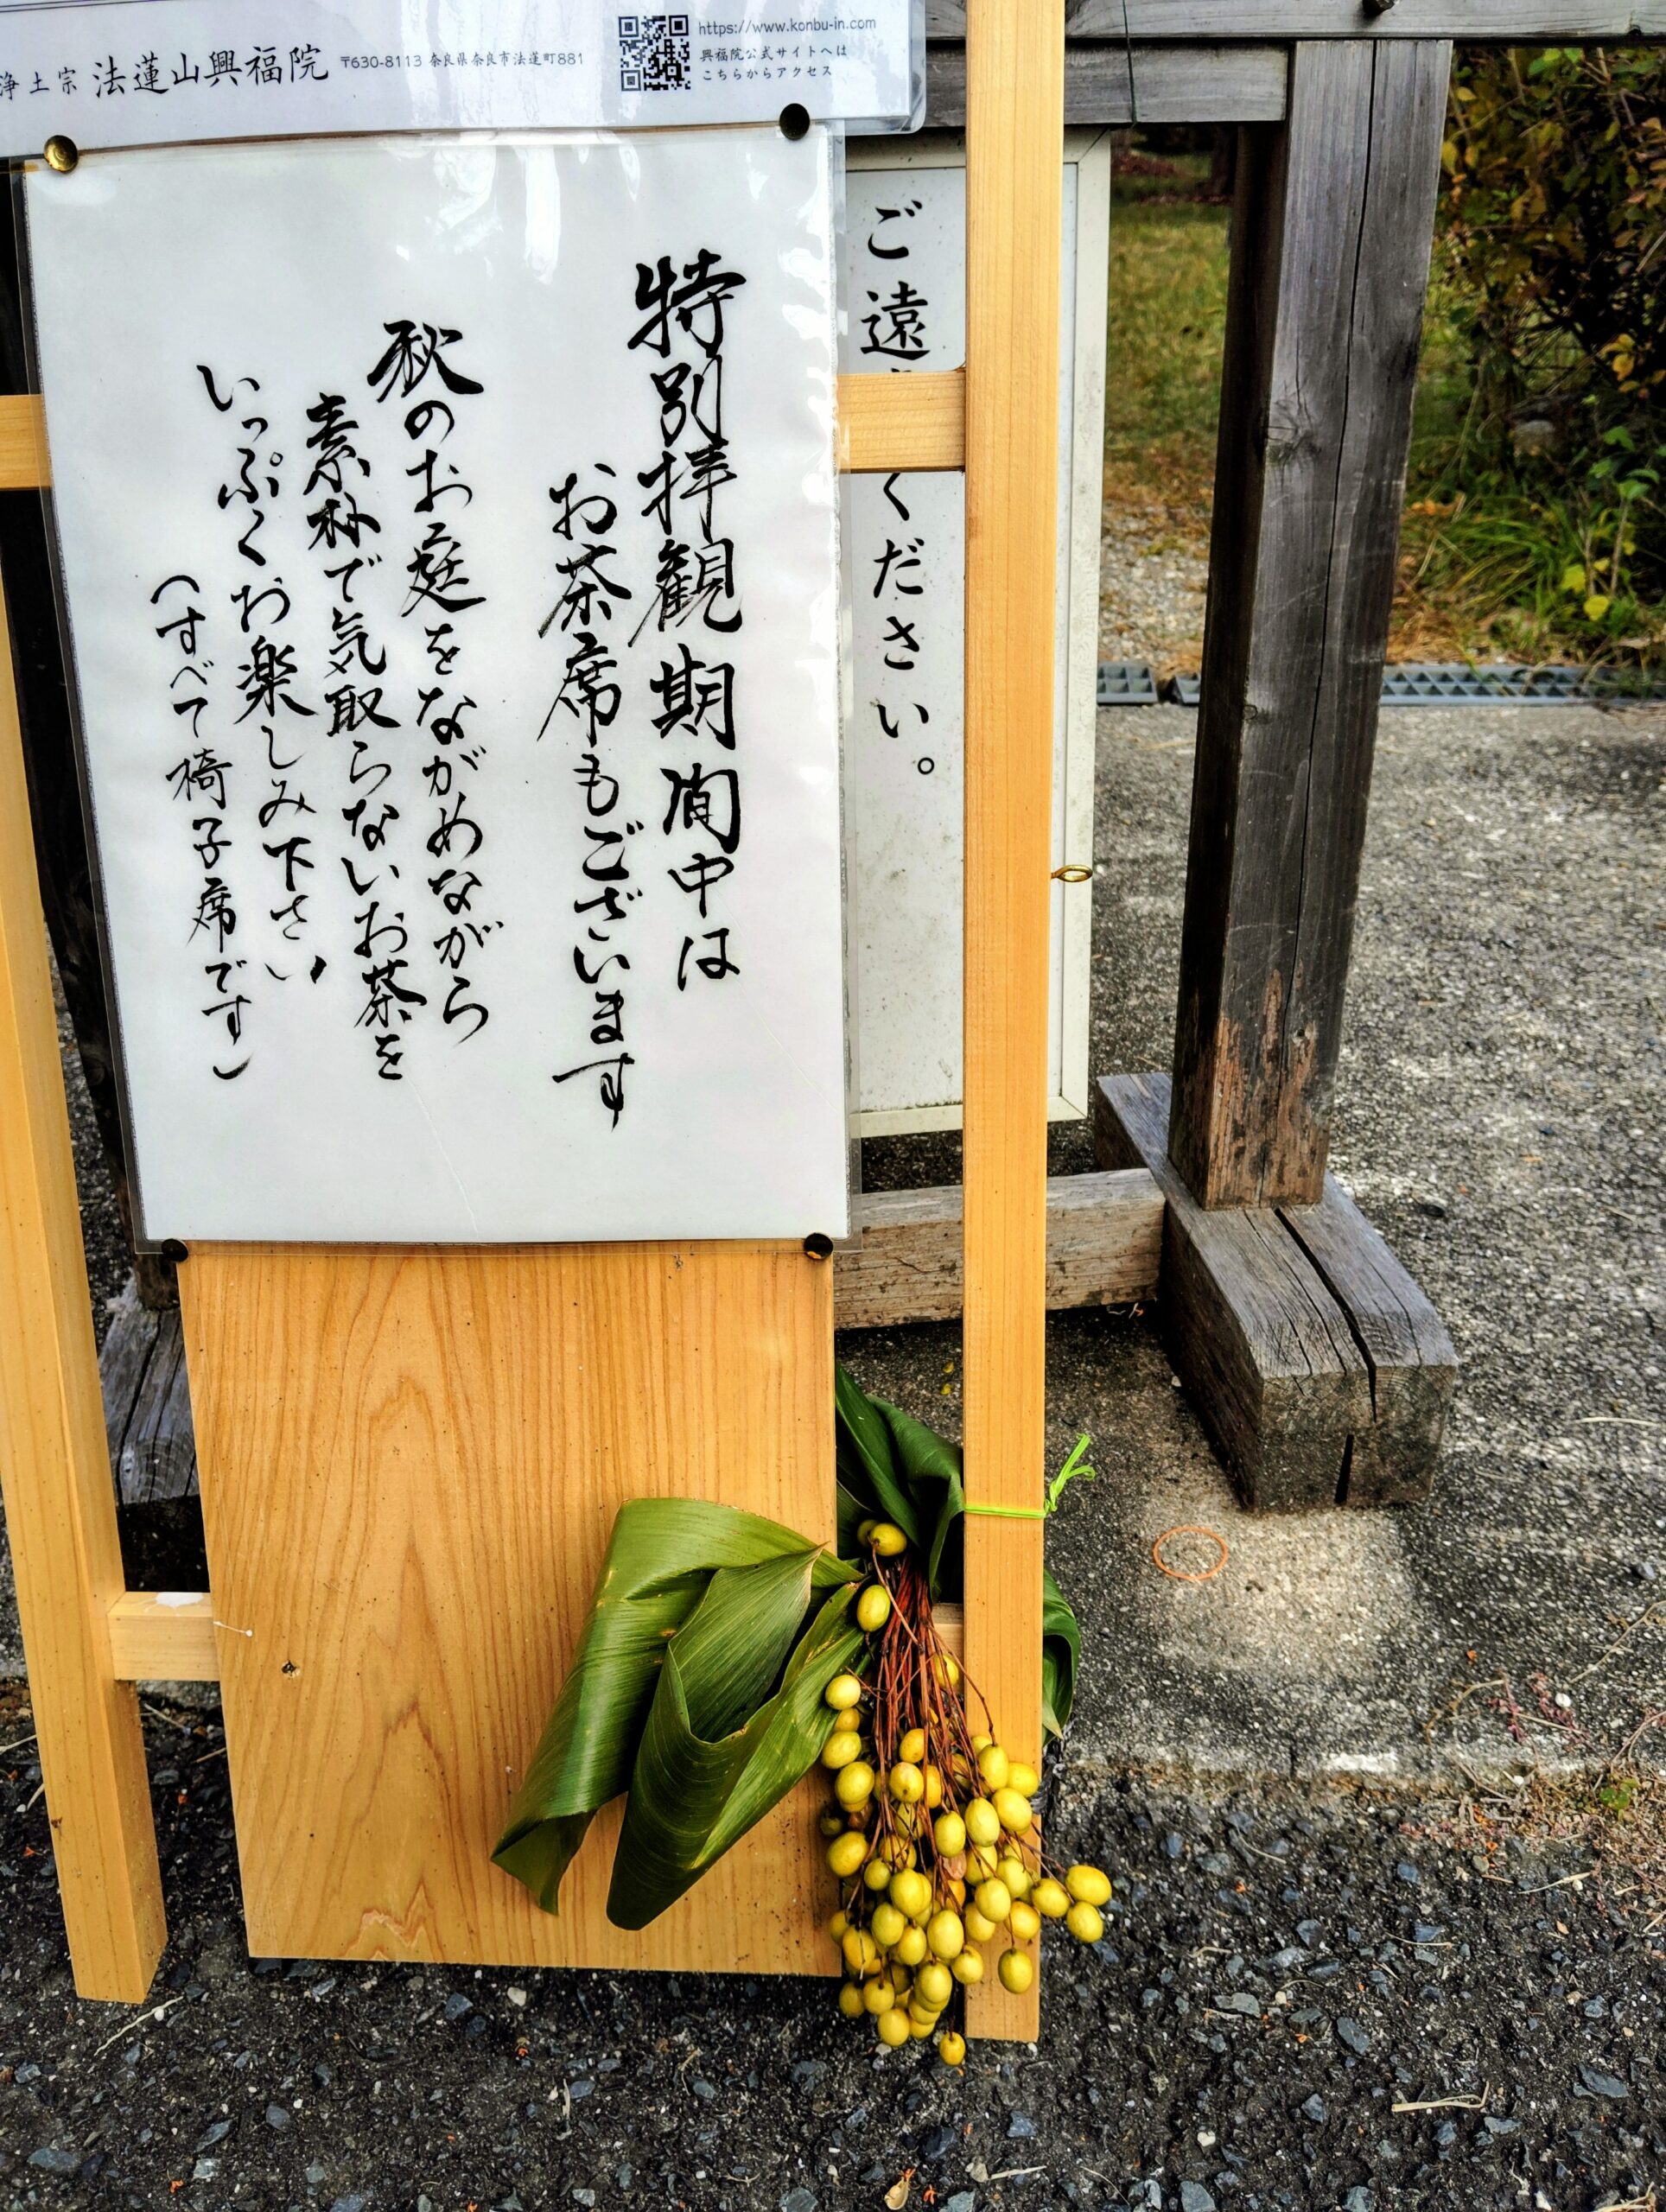 浄土宗 法蓮山興福院 〒630-8113 奈良県奈良市法蓮町881
https://www.konbu-in.com
興福院公式サイトへは
こちらからアクセス
特別拝観期间中は
お茶席もございます
秋のお庭をながめながら
素朴で気取らないお茶を
いっぷくお楽しみ下さい
(すべて椅子席です)
ご遠
ください。